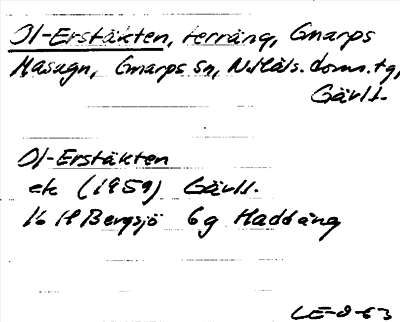 Ol-Erstäkten, terräng, Gnarps
Masugn, Gnarps sn, N.Häls. doms. tg,
Gävl.l.
Ol-Erstäkten
ek (1959) Gävl.l.
16 H Bergsjö 6g Haddäng
LE-8-63